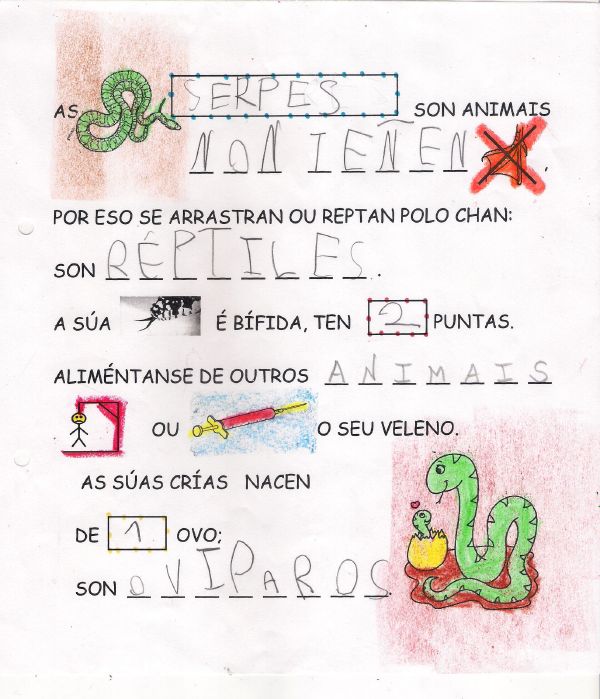 AS SERPES SON ANIMAIS
NON TEÑEN ,
POR ESO SE ARRASTRAN OU REPTAN POLO CHAN:
SON RÉPTILES.
A SÚA É BÍFIDA, TEN 2 PUNTAS.
ALIMÉNTANSE DE OUTROS ANIMAIS
OU O SEU VELENO.
AS SÚAS CRÍAS NACEN
DE 1 OVO;
SON OVIPaROS.